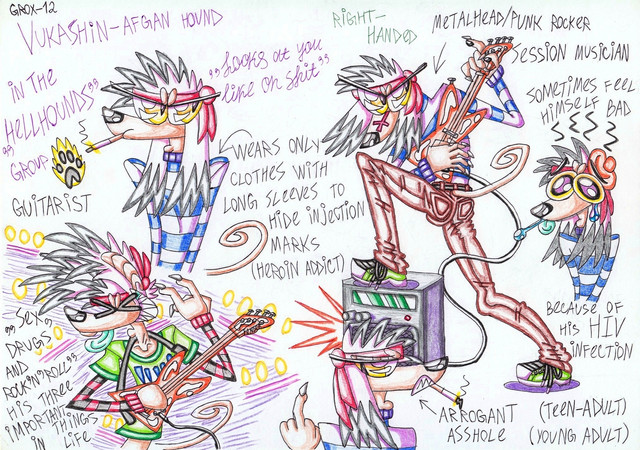 GROX-12
VUKASHIN-AFGAN HOUND
IN THE
"HELLHOUNDS"
GROUP
GUITARIST
"Looks at you
like on shit"
WEARS ONLY
CLOTHES WITH
LONG SLEEVES TO
HIDE INJECTION
MARKS
(HEROIN ADDICT)
RIGHT-
HANDED
METALHEAD/PUNK ROCKER
SESSION MUSICIAN
SOMETIMES FEEL
HIMSELF BAD
BECAUSE OF
HIS HIV
INFECTION
"SEX,
DRUGS
AND
ROCK'N'ROLL"
HIS THREE
IMPORTANT
THINGS
IN LIFE
ARROGANT
ASSHOLE
(TEEN-ADULT)
(YOUNG ADULT)